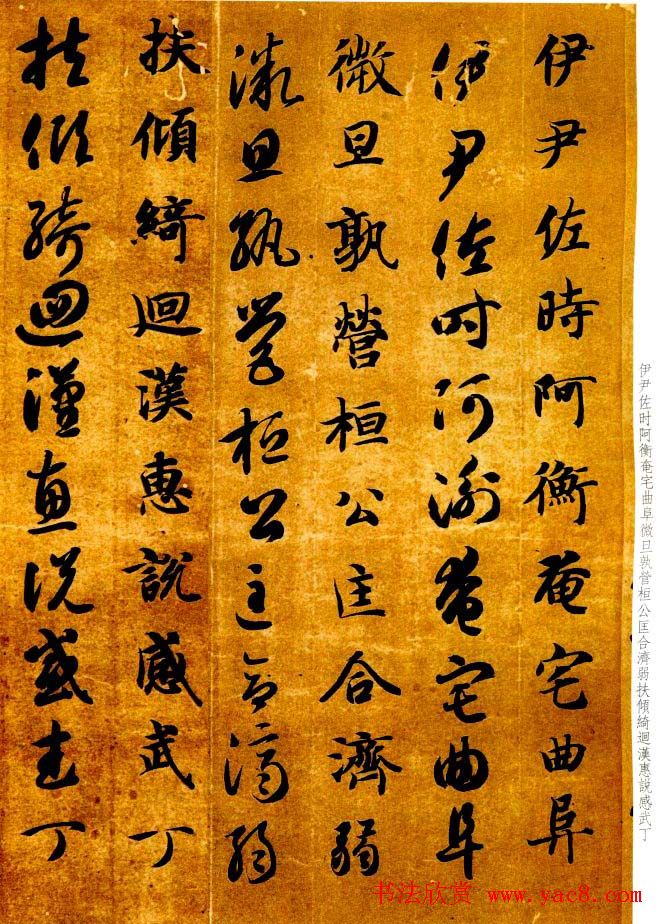 伊尹佐时阿衡奄宅曲阜微旦孰营桓公匡合濟弱扶傾綺迴漢惠說感武丁
伊尹佐時阿衡奄宅曲阜
伊尹佐時阿衡奄宅曲阜
微旦孰營桓公匡合濟弱
微旦孰營桓公匡合濟弱
扶傾綺迴漢惠說感武丁
扶傾綺迴漢惠說感武丁
书法欣赏 www.yac8.com